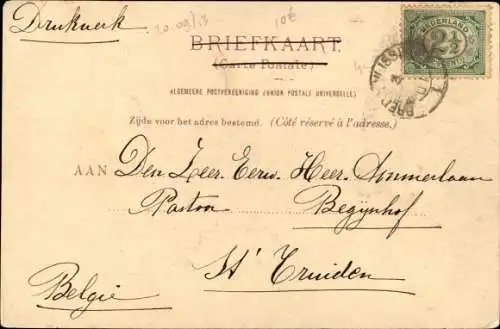 Drukwerk
20.09/13
10€
BRIEFKAART.
(Carte Postale)
ALGEMEENE POSTVEREENIGING (UNION POSTALE UNIVERSELLE)
Zijde voor het adres bestemd. (Côté réservé à l'adresse.)
NEDERLAND
2½
CENT
AAN Den Zeer Eerw. Heer Sommerlaan
Pastoor Begijnhof
St Truiden
België